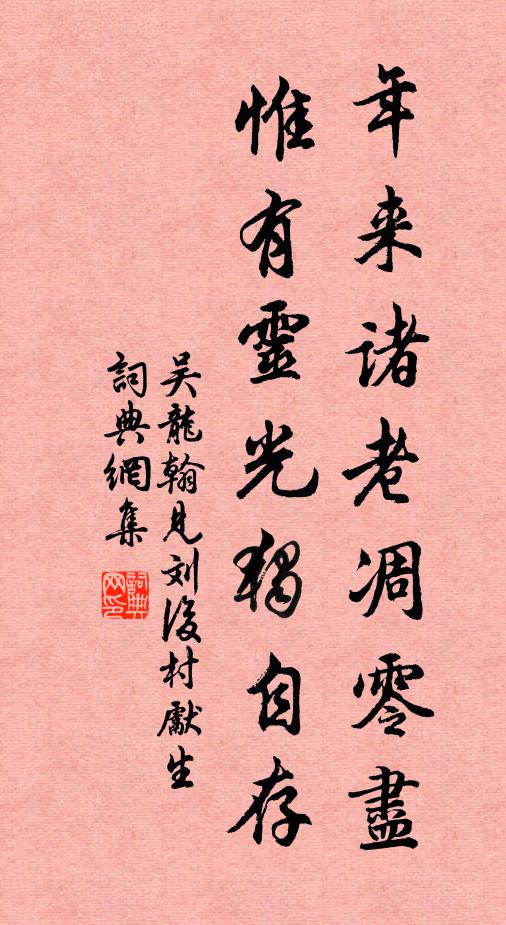 年来诸老凋零盡
惟有靈光獨自存
吴龍翰見刘後村獻生
詞典網集
詞典網印